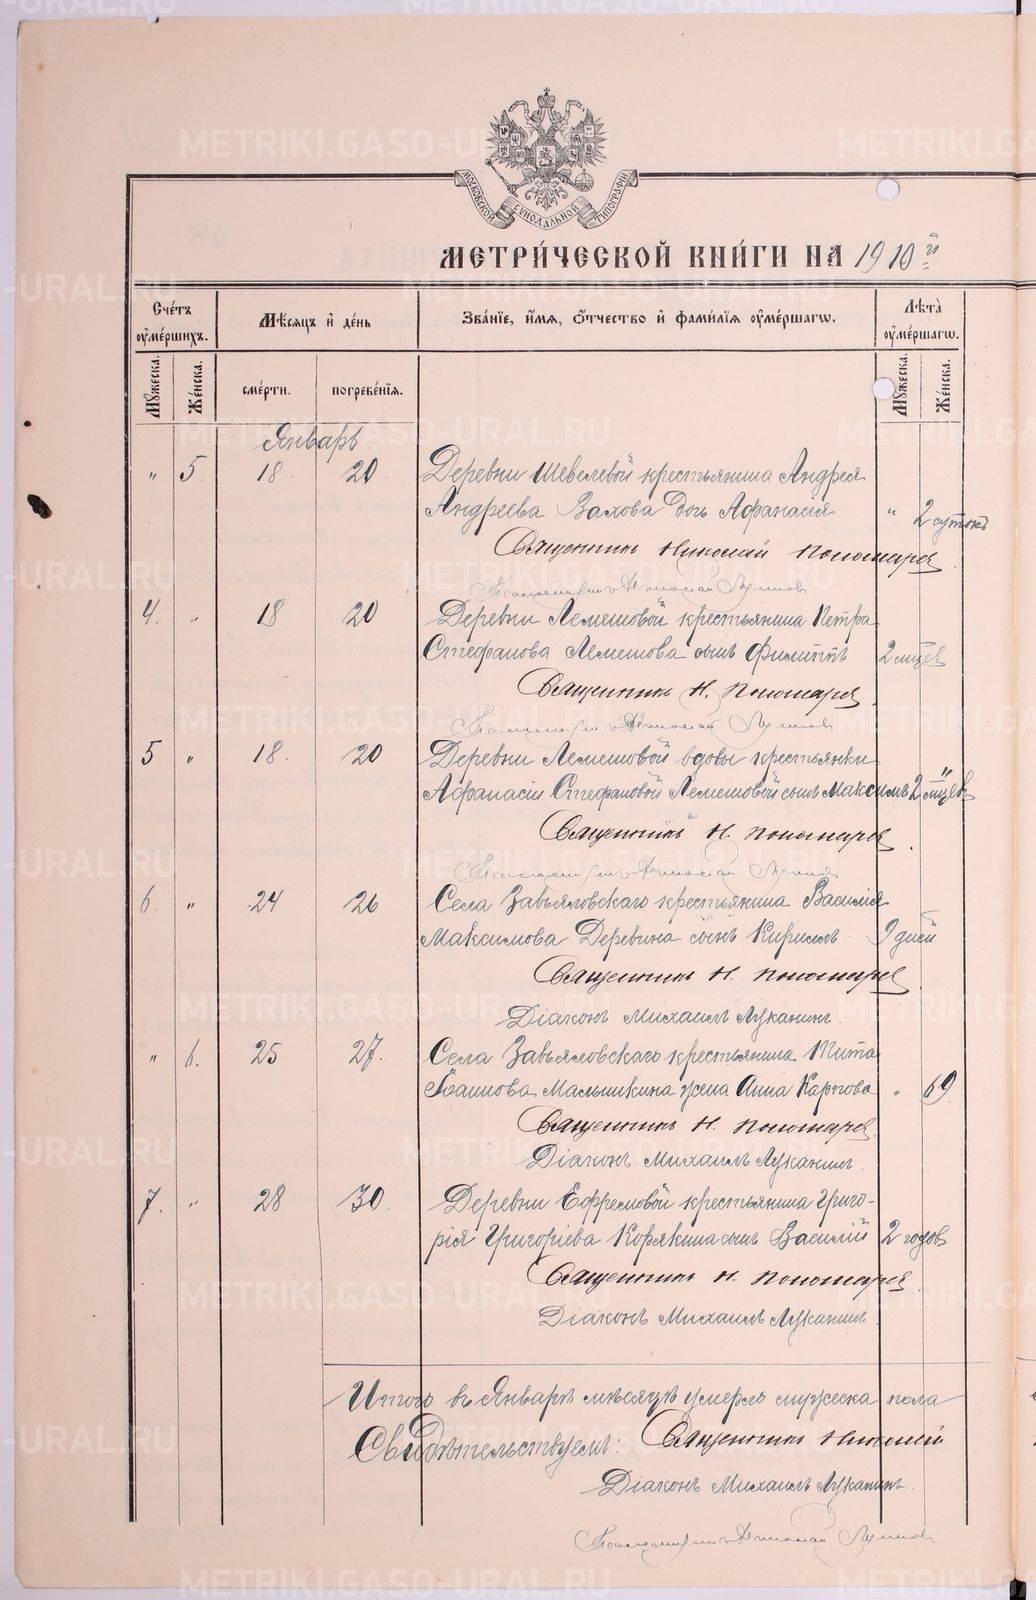 МОСКОВСКОЙ СУНОДАЛЬНОЙ ТИПОГРАФІИ
МЕТРИ́ЧЕСКОЙ КНИ́ГИ НА 1910й
Счетъ ѹмершихъ.
Мѣсяцъ и день
Званіе, имя, отчество и фамилія ѹмершагѡ.
Лѣта ѹмершагѡ.
Мужеска.
Женска.
смерти.
погребенія.
Мужеска.
Женска.
Январь
„ 5. 18. 20 Деревни Шевелевой крестьянина Андрея
Андреева Вахова дочь Афанасія „ 2 сутокъ
Священникъ Николай Пономарев
4. „ 18 20 Деревни Лемешовой крестьянина Петра
Стефанова Лемешова сынъ Филиппъ 2 мѣсяц
Священникъ Н. Пономарев
5 „ 18. 20 Деревни Лемешовой вдовы крестьянки
Афанасіи Стефановой Лемешовой сынъ Максимъ 2 мѣсяц „
Священникъ Н. Пономарев
6. „ 24 26 Села Завьяловскаго крестьянина Василія
Максимова Деревина сынъ Кириллъ 9 дней
Священникъ Н. Пономарев
Діаконъ Михаилъ Луканинъ.
„ 6. 25 27. Села Завьяловскаго крестьянина Тита
Іоаннова Малышкина жена Анна Карпова „ 69
Священникъ Н. Пономарев
Діаконъ Михаилъ Луканинъ.
7. „ 28 30 Деревни Ефремовой крестьянина Григо-
рія Григоріева Корякина сынъ Василій 2 годов
Священникъ Н. Пономарев
Діаконъ Михаилъ Луканинъ
Итого въ Январѣ мѣсяцѣ умерло мужеска пола
Свидѣтельствуемъ: Священникъ Николай
Діаконъ Михаилъ Луканинъ.
METRIKI.GASO-URAL.RU